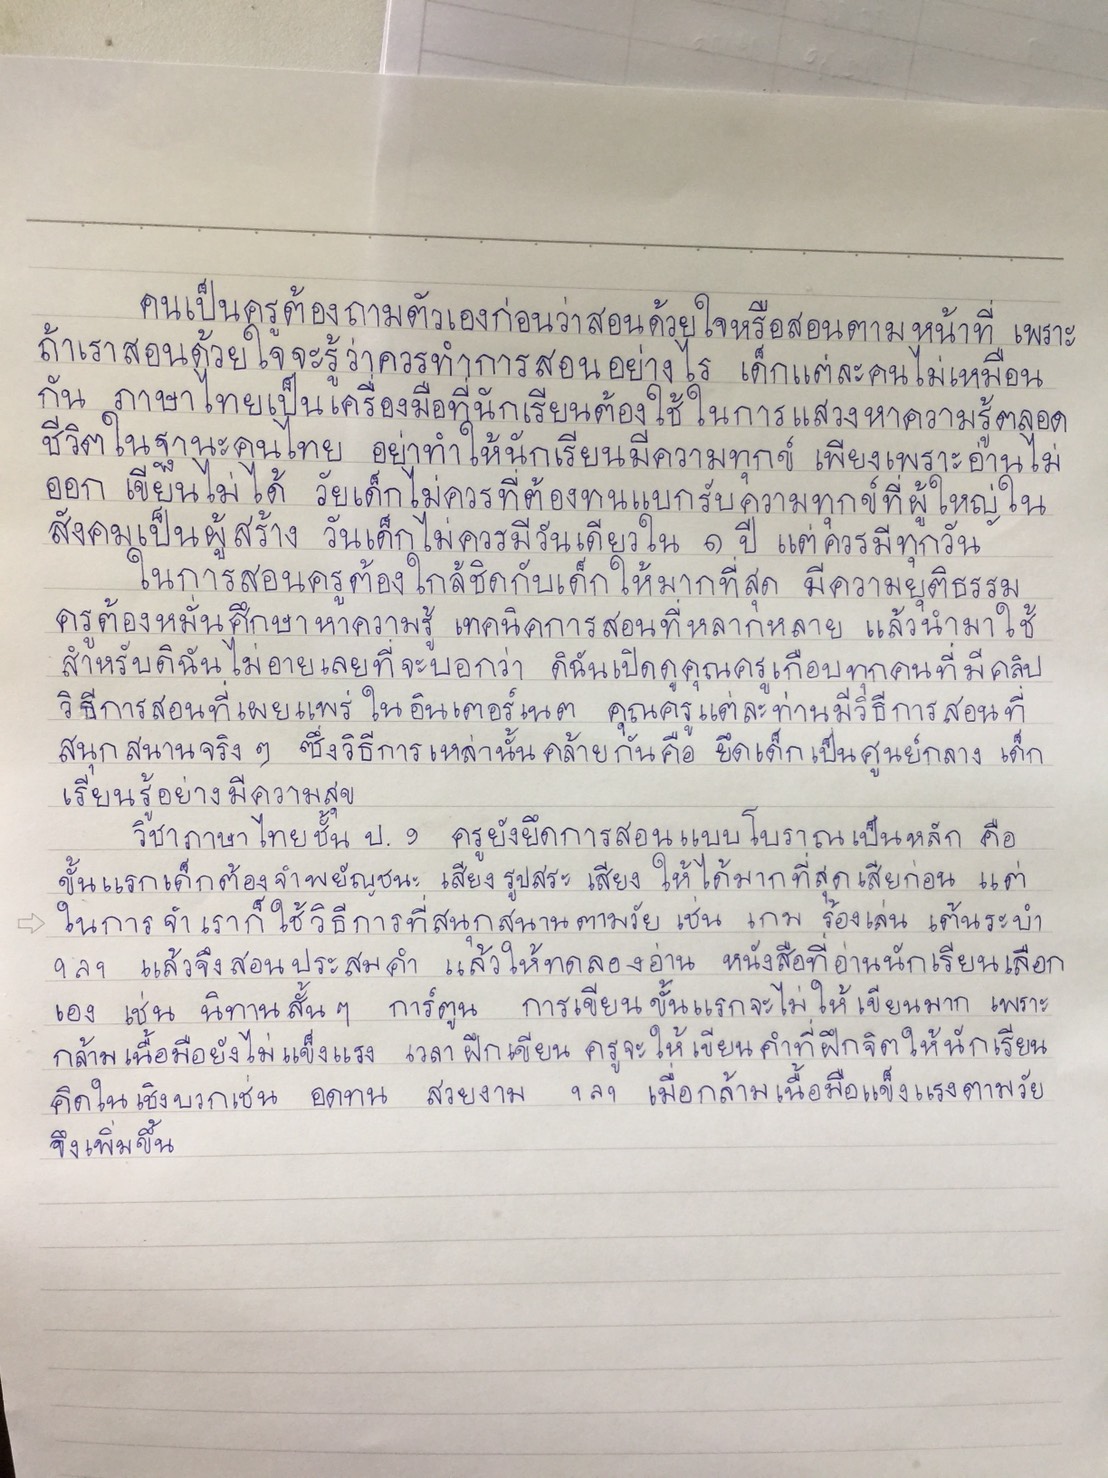 คนเป็นครูต้องถามตัวเองก่อนว่าสอนด้วยใจหรือสอนตามหน้าที่ เพราะ
ถ้าเราสอนด้วยใจจะรู้ว่าควรทำการสอนอย่างไร เด็กแต่ละคนไม่เหมือน
กัน ภาษาไทยเป็นเครื่องมือที่นักเรียนต้องใช้ในการแสวงหาความรู้ตลอด
ชีวิตในฐานะคนไทย อย่าทำให้นักเรียนมีความทุกข์ เพียงเพราะอ่านไม่
ออก เขียนไม่ได้ วัยเด็กไม่ควรที่ต้องทนแบกรับความทุกข์ที่ผู้ใหญ่ใน
สังคมเป็นผู้สร้าง วันเด็กไม่ควรมีวันเดียวใน ๑ ปี แต่ควรมีทุกวัน
ในการสอนครูต้องใกล้ชิดกับเด็กให้มากที่สุด มีความยุติธรรม
ครูต้องหมั่นศึกษาหาความรู้ เทคนิคการสอนที่หลากหลาย แล้วนำมาใช้
สำหรับดิฉันไม่อายเลยที่จะบอกว่า ดิฉันเปิดดูคุณครูเกือบทุกคนที่มีคลิป
วิธีการสอนที่เผยแพร่ในอินเตอร์เนต คุณครูแต่ละท่านมีวิธีการสอนที่
สนุกสนานจริงๆ ซึ่งวิธีการเหล่านั้นคล้ายกันคือ ยึดเด็กเป็นศูนย์กลาง เด็ก
เรียนรู้อย่างมีความสุข
วิชาภาษาไทยชั้น ป. ๑ ครูยังยึดการสอนแบบโบราณเป็นหลัก คือ
ขั้นแรกเด็กต้องจำพยัญชนะ เสียง รูปสระ เสียง ให้ได้มากที่สุดเสียก่อน แต่
⇨ ในการจำเราก็ใช้วิธีการที่สนุกสนานตามวัย เช่น เกม ร้องเล่น เต้นระบำ
ฯลฯ แล้วจึงสอนประสมคำ แล้วให้ทดลองอ่าน หนังสือที่อ่านนักเรียนเลือก
เอง เช่น นิทานสั้นๆ การ์ตูน การเขียนขั้นแรกจะไม่ให้เขียนมาก เพราะ
กล้ามเนื้อมือยังไม่แข็งแรง เวลาฝึกเขียน ครูจะให้เขียนคำที่ฝึกจิตให้นักเรียน
คิดในเชิงบวกเช่น อดทน สวยงาม ฯลฯ เมื่อกล้ามเนื้อมือแข็งแรงตามวัย
จึงเพิ่มขึ้น